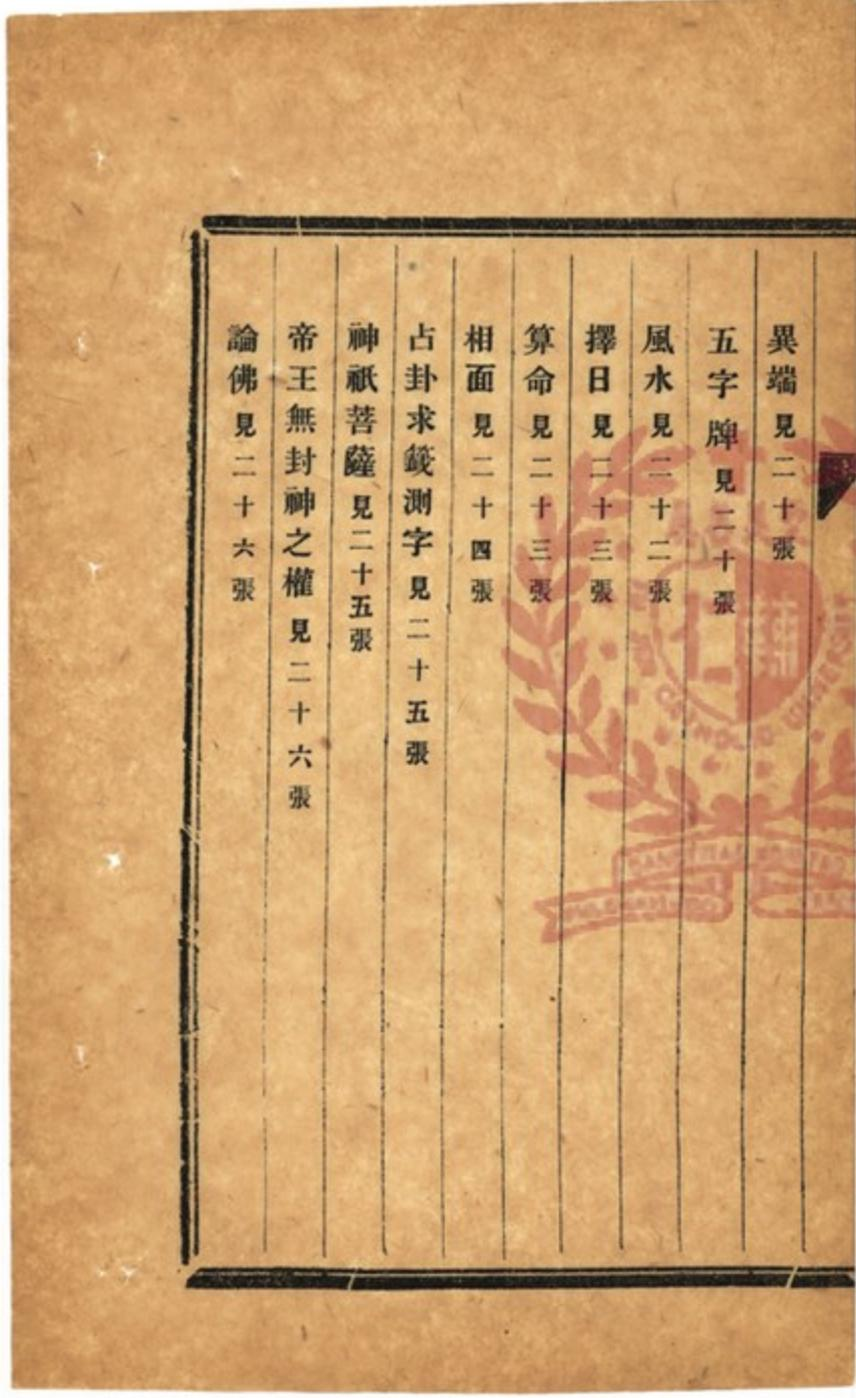 異端見二十張
五字牌見二十張
風水見二十二張
擇日見二十三張
算命見二十三張
相面見二十四張
占卦求籤測字見二十五張
神祇菩薩見二十五張
帝王無封神之權見二十六張
論佛見二十六張